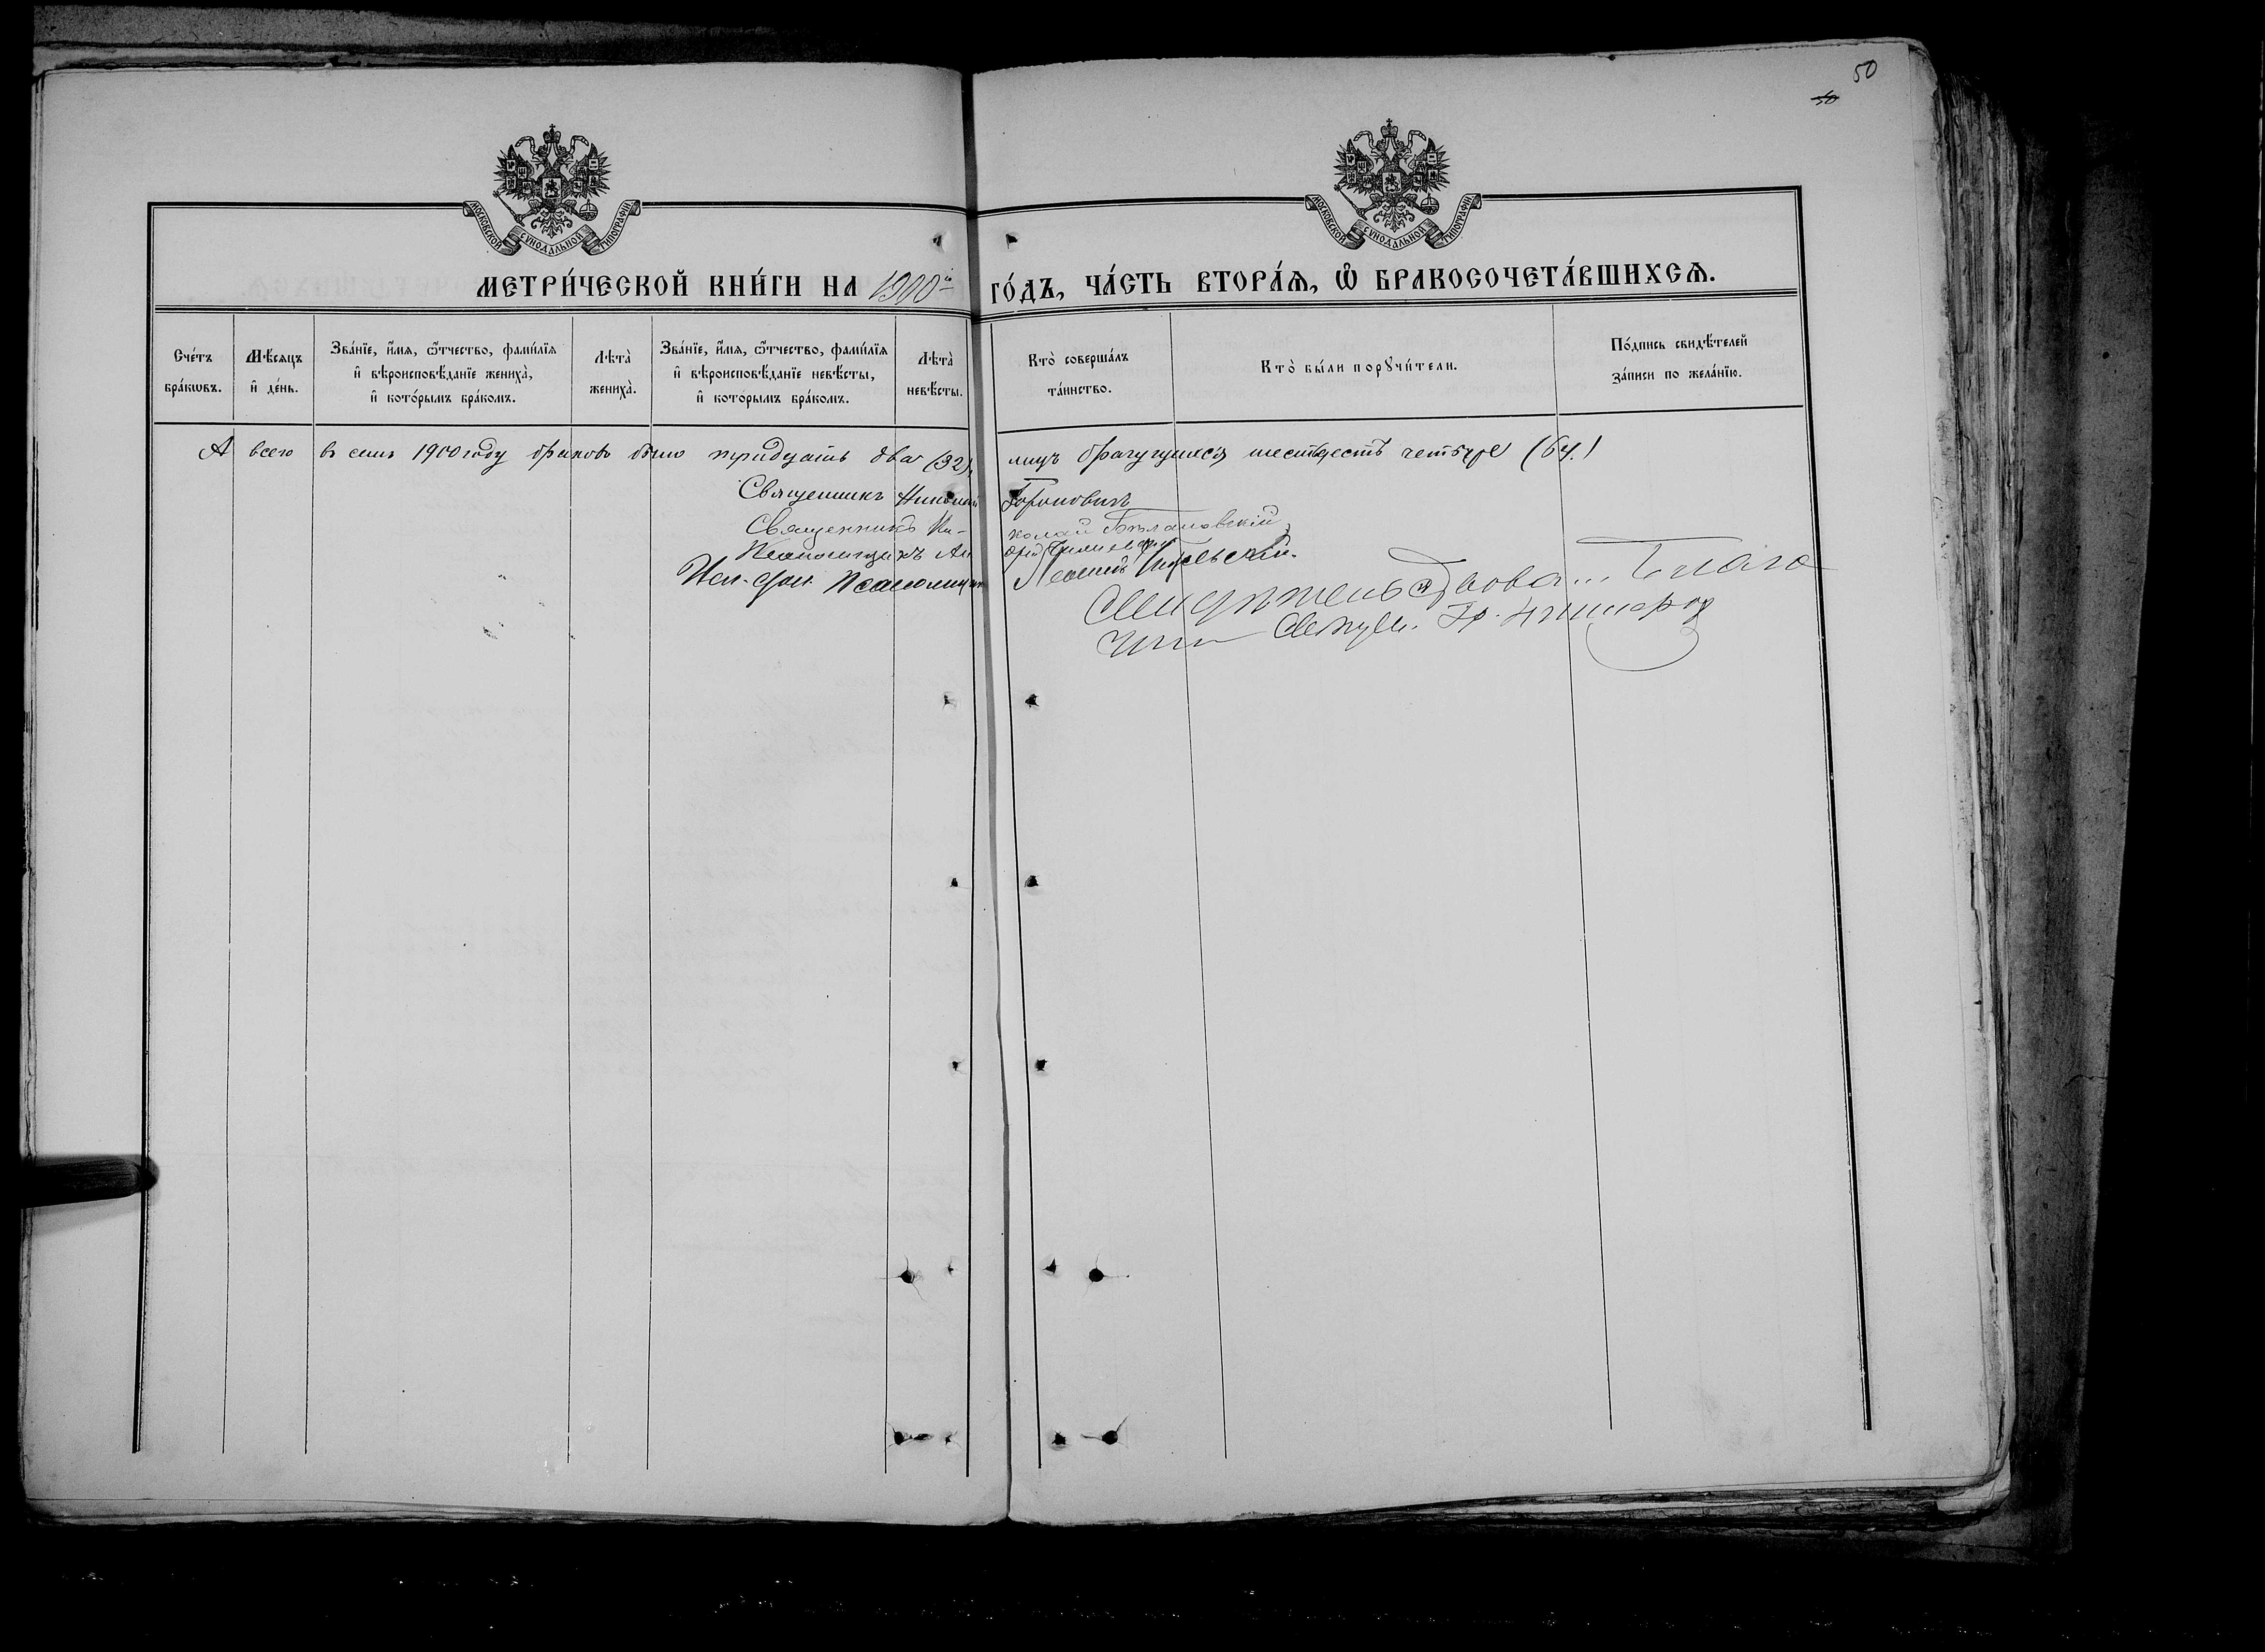 50
50
МОСКОВСКОЙ СѴНОДАЛЬНОЙ ТИПОГРАФІИ
МОСКОВСКОЙ СѴНОДАЛЬНОЙ ТИПОГРАФІИ
МЕТРИ́ЧЕСКОЙ КНИ́ГИ НА 1900й ГО́ДЪ, ЧА́СТЬ ВТОРА́Ѧ, Ѽ БРАКОСОЧЕТА́ВШИХСѦ.
Сче́тъ бра́кѡвъ.
Мѣ́сѧцъ и҆ де́нь.
Зва́нїе, и҆́мѧ, ѻ҆́тчество, фамѝлїѧ и҆ вѣроисповѣ́данїе жениха̀, и҆ кото́рымъ бра́комъ.
Лѣта̀ жениха̀.
Зва́нїе, и҆́мѧ, ѻ҆́тчество, фамѝлїѧ и҆ вѣроисповѣ́данїе невѣ́сты, и҆ кото́рымъ бра́комъ.
Лѣта̀ невѣ́сты.
Кто̀ соверша́лъ та́инство.
Кто̀ бы́ли порꙋчи́тели.
По́дпись свидѣ́телей за́писи по жела́нїю.
А всего въ семъ 1900 году браковъ было тридцать два (32), лицъ брачущихся шестьдесятъ четыре (64.)
Священникъ Николай
Священникъ Николай Бѣлановскій
Псаломщикъ Андрей
Исп. дол. Псаломщика Леонидъ